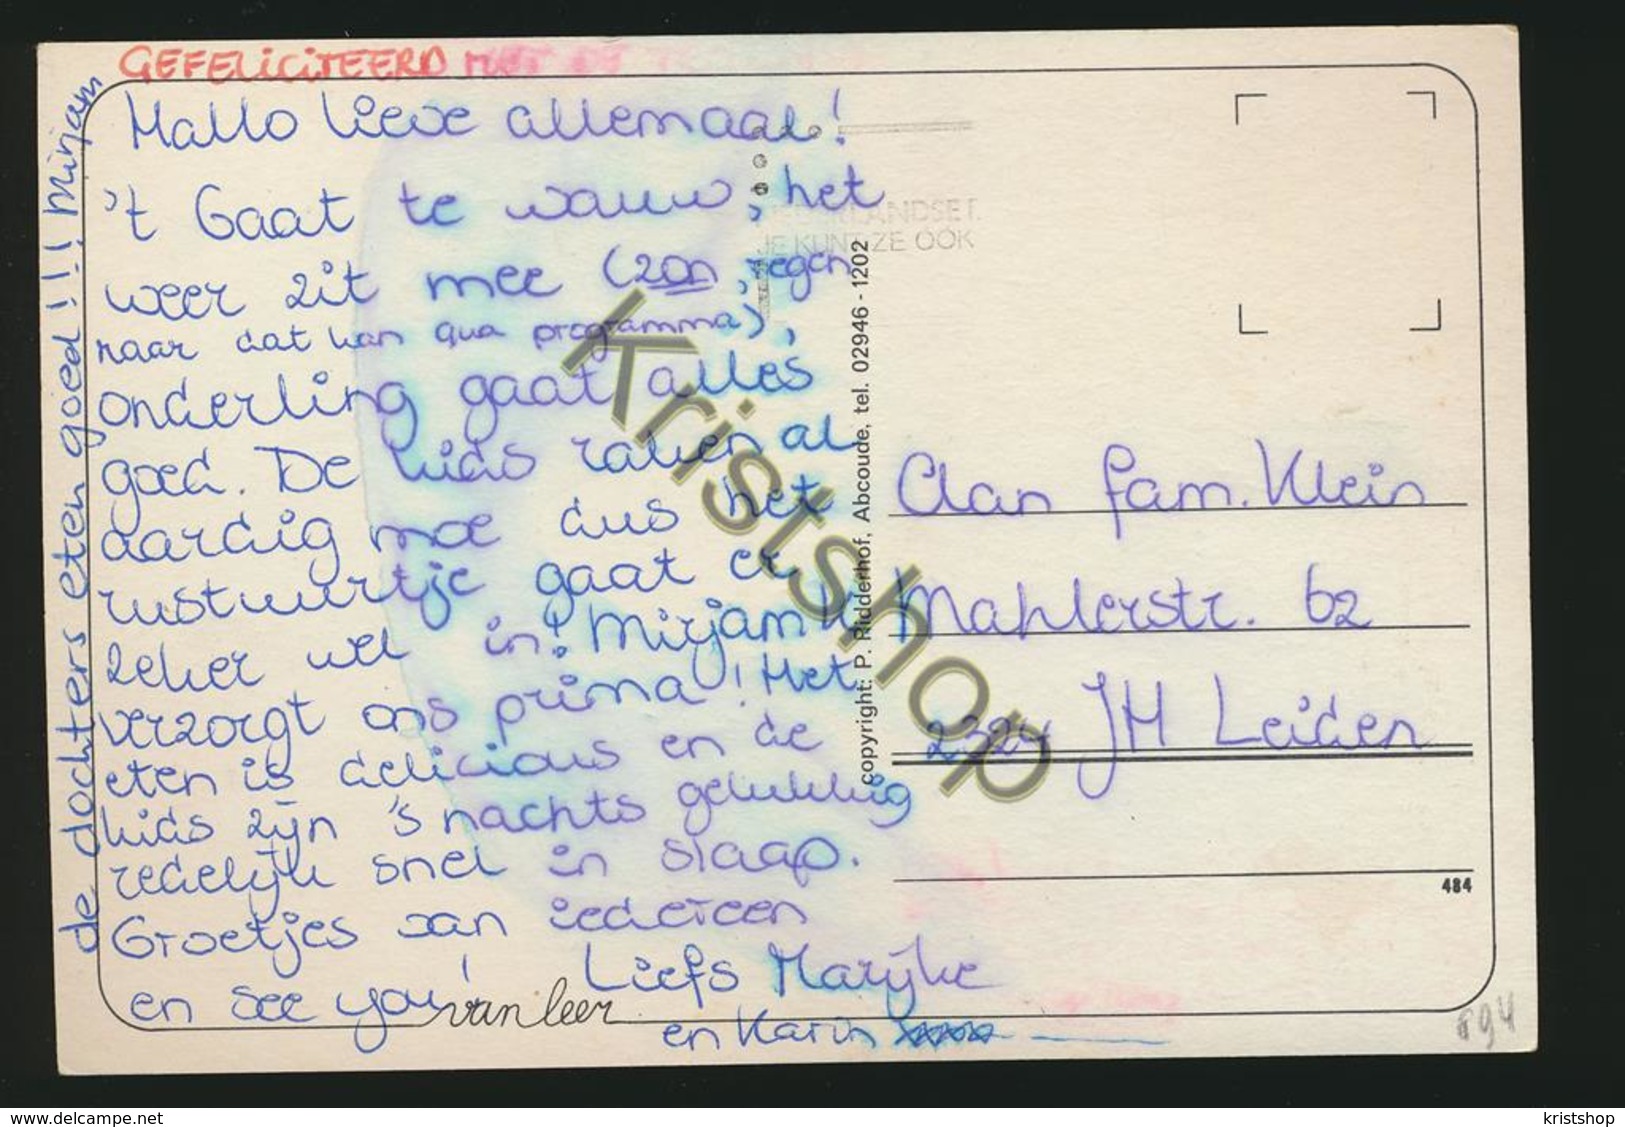 GEFELICITEERD MET DE
Hallo lieve allemaal!
't Gaat te wauw, het
weer zit mee (zon, regen
maar dat kan qua programma),
onderling gaat alles
goed. De kids raken al
aardig moe dus het
rustuurtje gaat er
zeker wel in! Mirjam K
verzorgt ons prima! Het
eten is delicious en de
kids zijn 's nachts gelukkig
redelijk snel in slaap.
Groetjes van iedereen
en see you!
Liefs Marijke
en Karin
van leer
de dochters eten goed!!! Mirjam
NEDERLANDSE T.
JE KUNT ZE OOK
copyright: P. Ridderhof, Abcoude, tel. 02946 - 1202
Aan fam. Klein
Mahlerstr. 62
2324 JH Leiden
484
Kristshop
www.delcampe.net
kristshop